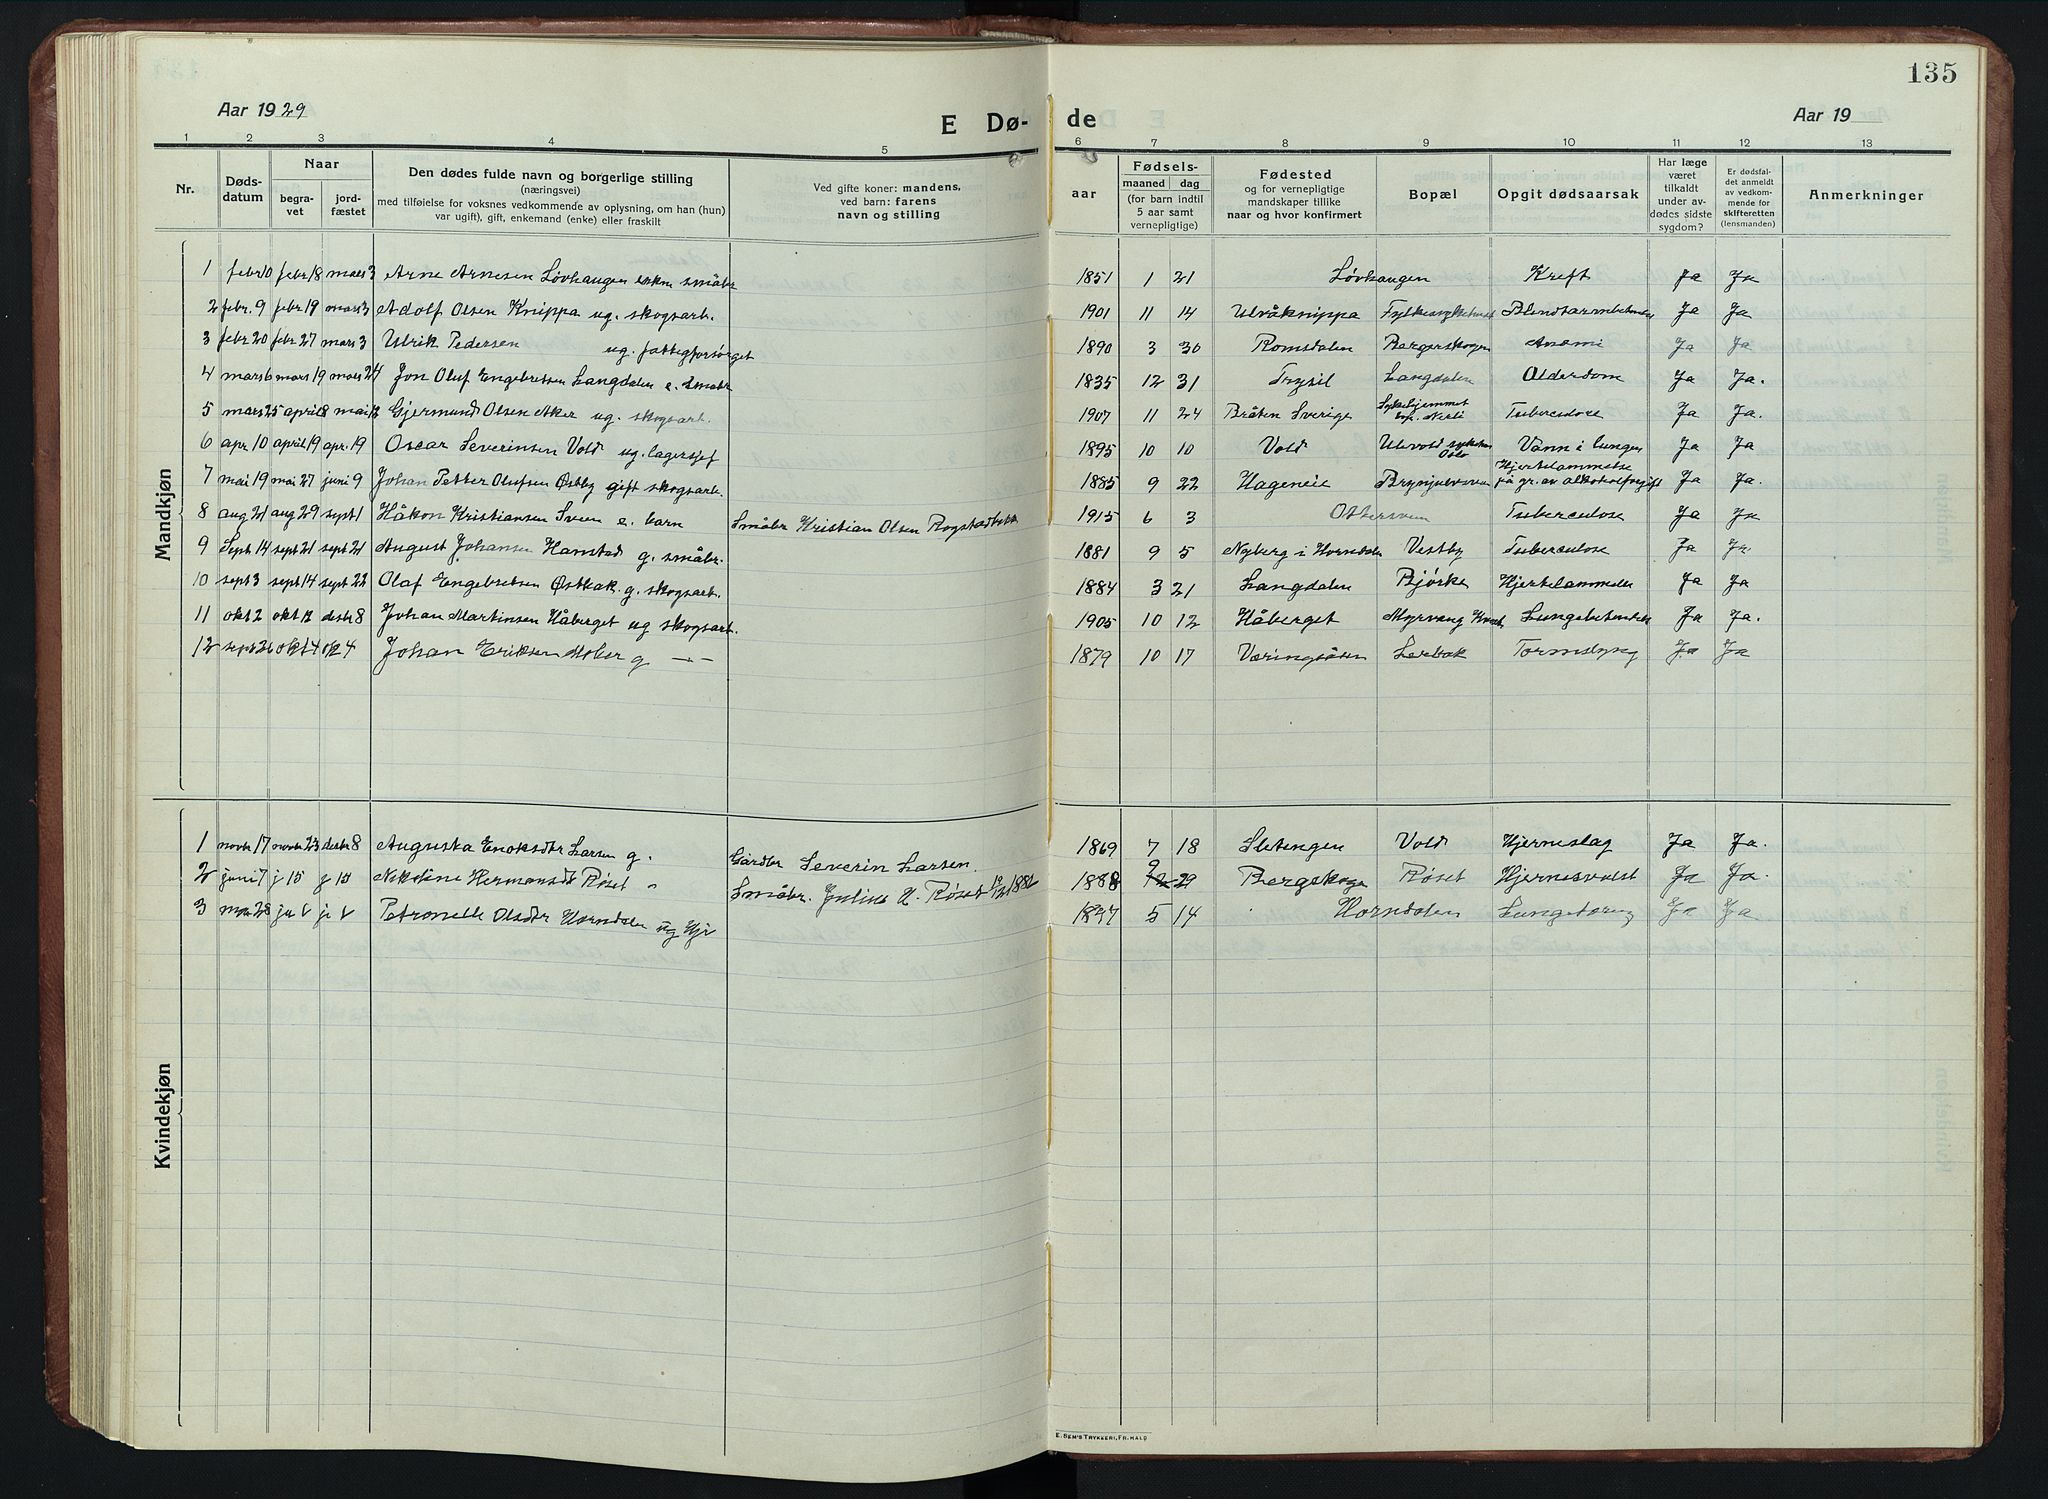 135
Aar 1929 E Dø- de Aar 19
1 2 3 4 5 6 7 8 9 10 11 12 13
Nr. Døds-datum Naar begra-vet jord-fæstet
Den dødes fulde navn og borgerlige stilling (næringsvei) med tilføielse for voksnes vedkommende av oplysning, om han (hun) var ugift), gift, enkemand (enke) eller fraskilt
Ved gifte koner: mandens, ved barn: farens navn og stilling
aar Fødsels- maaned dag (for barn indtil 5 aar samt vernepligtige)
Fødested og for vernepligtige mandskaper tillike naar og hvor konfirmert
Bopæl
Opgit dødsaarsak
Har læge været tilkaldt under av-dødes sidste sygdom?
Er dødsfal-det anmeldt av vedkom-mende for skifteretten (lensmanden)
Anmerkninger
Mandkjøn
1 febr 10 febr 18 mars 3 Arne Arnesen Løvhaugen småbr 1851 1 21 Løvhaugen Kreft Ja Ja
2 febr. 9 febr 19 mars 3 Adolf Olsen Knippa ug. skogsarb. 1901 11 14 Ulvåknippa Fylkessykehuset Blindtarmbetendelse Ja Ja
3 febr 20 febr 27 mars 3 Ulrik Pedersen ug. fattigforsörget 1890 3 30 Romsdalen Bergerskogen Anæmi Ja Ja
4 mars 6 mars 19 mars 24 Jon Oluf Engebretsen Langdalen e. småbr 1835 12 31 Trysil Langdalen Alderdom Ja Ja.
5 mars 25 april 8 mai Gjermund Olsen Aker ug. skogsarb. 1907 11 24 Bråten Sverige Sykehjemmet Nerli Tuberculose Ja Ja.
6 apr. 10 april 19 apr. 19 Oscar Severinsen Vold ug. lagersjef 1895 10 10 Vold Ulevold sykehus Oslo Vann i lungen Ja Ja
7 mai 19 mai 27 juni 9 Johan Petter Olufsen Østby gift skogsarb. 1885 9 22 Hageneie Hjertelammelse på gr. av alkoholforgift Ja Ja.
8 aug 21 aug 29 sept 1 Håkon Kristiansen Sveen e. barn Småbr Kristian Olsen Rogstadbakk 1915 6 3 Ottersveen Tuberculose Ja Ja
9 Sept 14 sept 21 sept 21 August Johansen Hamstad g. småbr. 1881 9 5 Nyberg i Horndalen Vestby Tuberculose Ja Ja.
10 sept 3 sept 14 sept 22 Olaf Engebretsen Østbak g. skogsarb. 1884 3 21 Langdalen Bjórke Hjertelammelse Ja Ja
11 okt 2 okt 12 desbr 8 Johan Martinsen Håberget ug skogsarb. 1905 10 12 Håberget Myrvang Lungebetendelse Ja Ja.
12 sept 26 okt 4 okt 4 Johan Eriksen Moberg g — — 1879 10 17 Væringsåsen Lerbak Tarmslyng Ja Ja
Kvindekjøn
1 novbr 17 novbr 23 desbr 8 Augusta Enoksdtr Larsen g. Gårdbr Severin Larsen. 1869 7 18 Sletengen Vold Hjerneslag Ja Ja.
2 juni 7 j 15 j 15 Nikoline Hermansdtr Røset " Småbr. Julius H. Røset 1888 9 29 Bergskogen Røset Hjernesvulst Ja Ja.
3 mai 28 Petronelle Olsdtr Horndalen ug Hj 1897 5 14 Horndalen Lungetæring Ja Ja
E. SEM'S TRYKKERI, FR.HALD